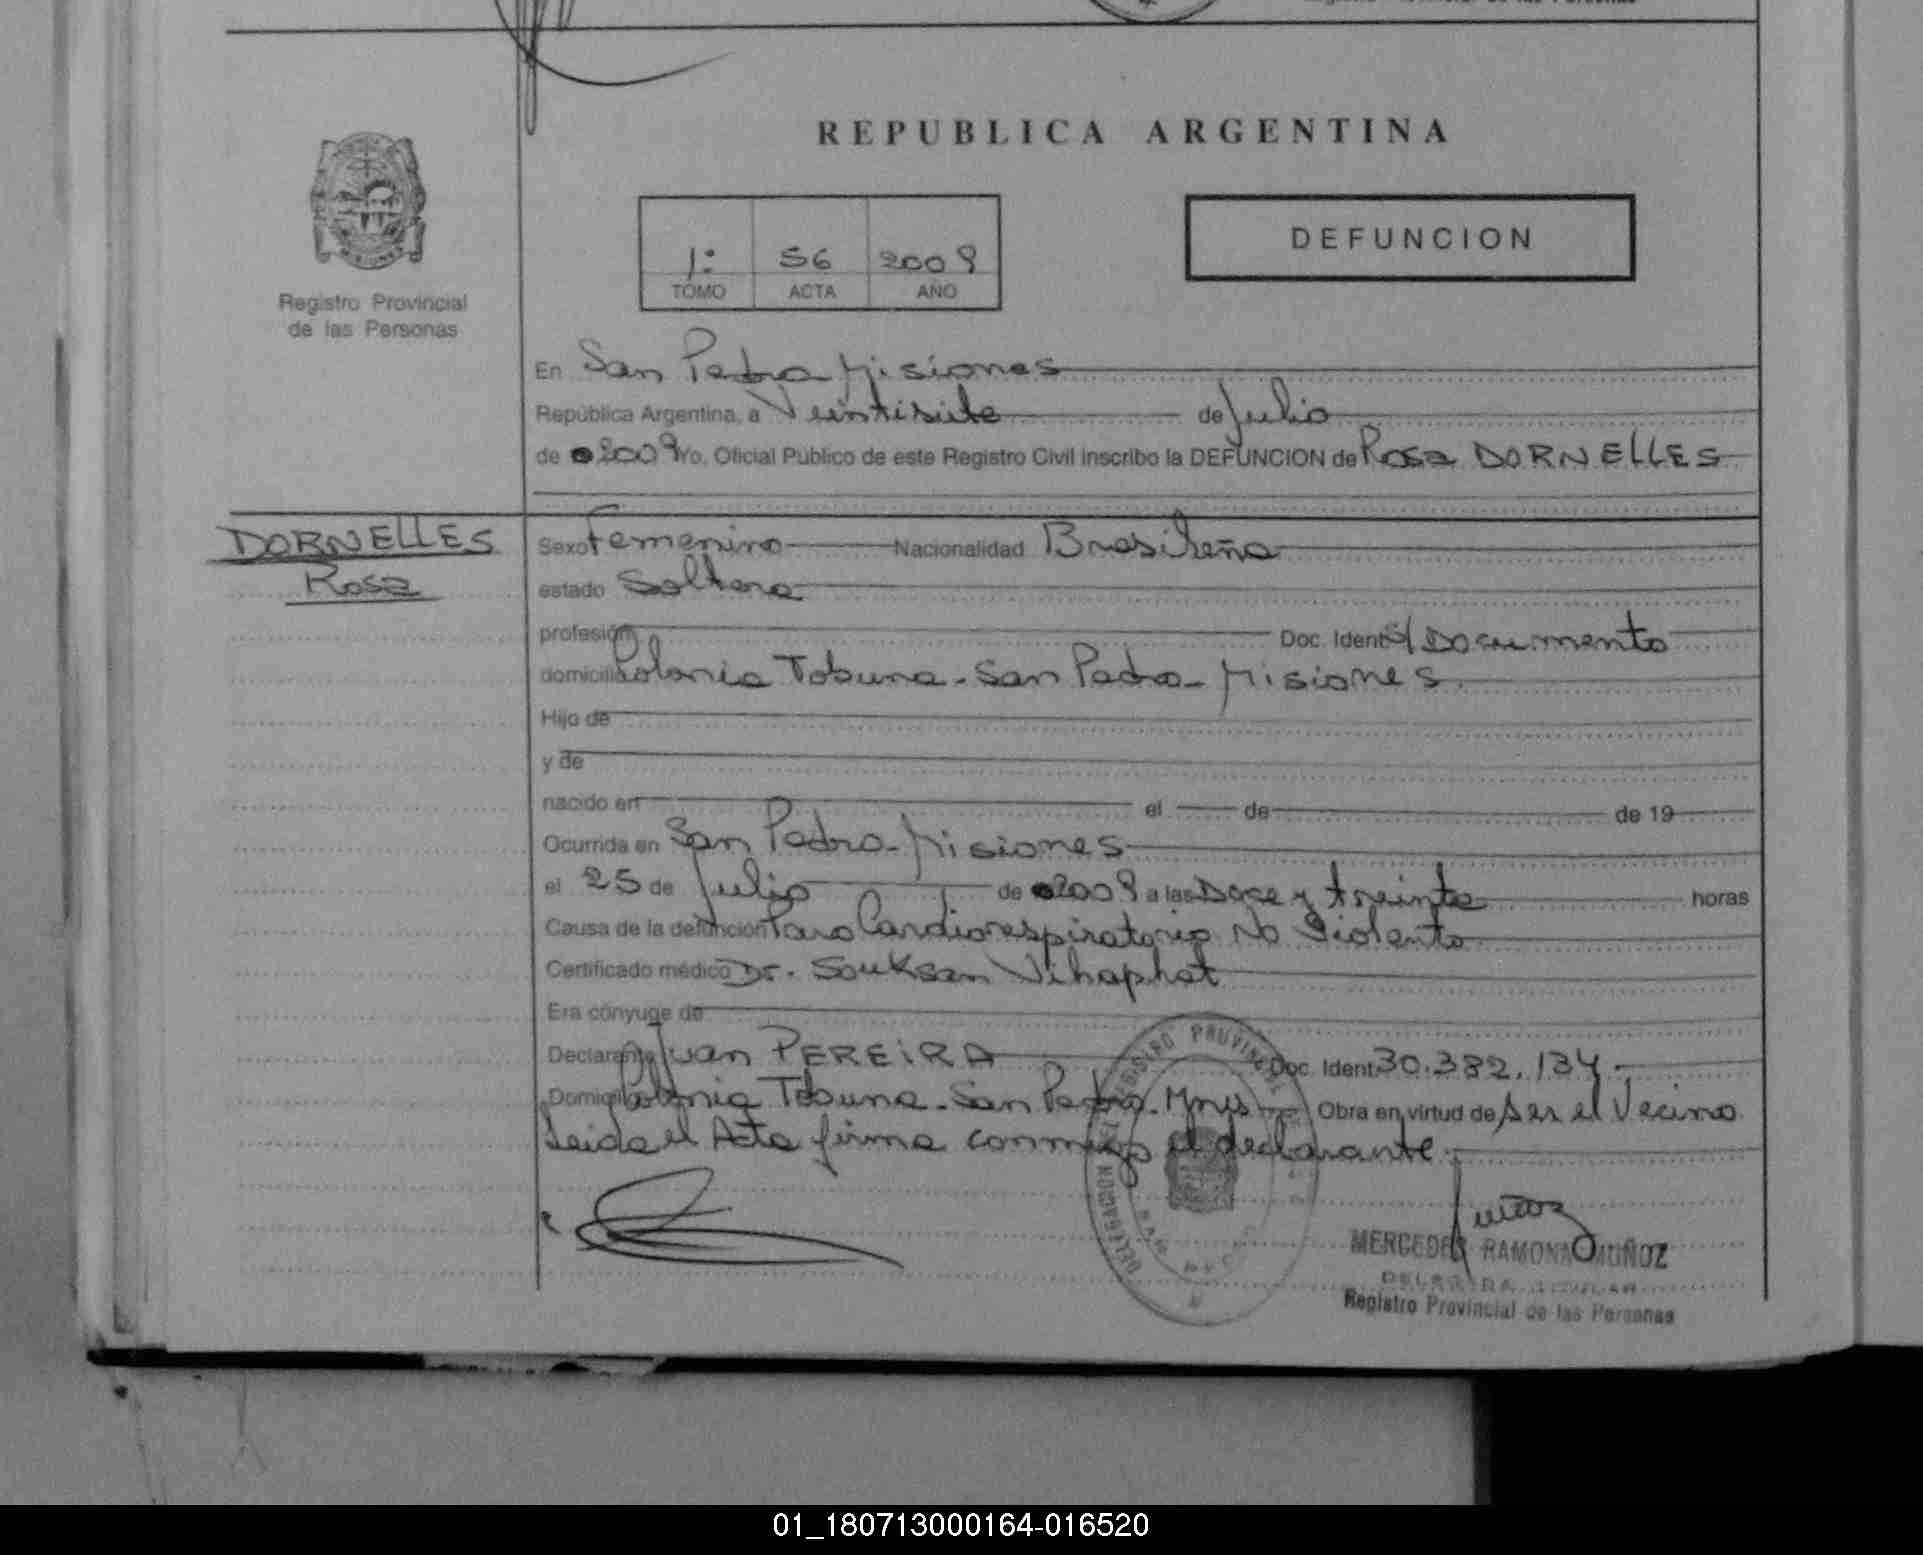 REPUBLICA ARGENTINA
Registro Provincial
de las Personas
1: 56 2009
TOMO ACTA AÑO
DEFUNCION
En San Pedro Misiones
República Argentina, a Veintisiete de Julio
de 2009 Yo, Oficial Público de este Registro Civil inscribo la DEFUNCION de Rosa DORNELLES
DORNELLES
Rosa
Sexo Femenino Nacionalidad Brasileña
estado Soltera
profesión Doc. Ident. S/Documento
domicilio Colonia Tobuna - San Pedro - Misiones.
Hijo de
y de
nacido en el de de 19
Ocurrida en San Pedro - Misiones
el 25 de Julio de 2009 a las Doce y treinta horas
Causa de la defunción Paro Cardiorespiratorio No Violento
Certificado médico Dr. Souksan Vihaphat
Era cónyuge de
Declarante Juan PEREIRA Doc. Ident. 30.382.134.-
Domicilio Colonia Tobuna - San Pedro - Mnes Obra en virtud de ser el Vecino
Leida el Acta firma conmigo el declarante.
REGISTRO PROVINCIAL
DELEGACION
MERCEDES RAMONA MUÑOZ
DELEGADA TITULAR
Registro Provincial de las Personas
01_180713000164-016520